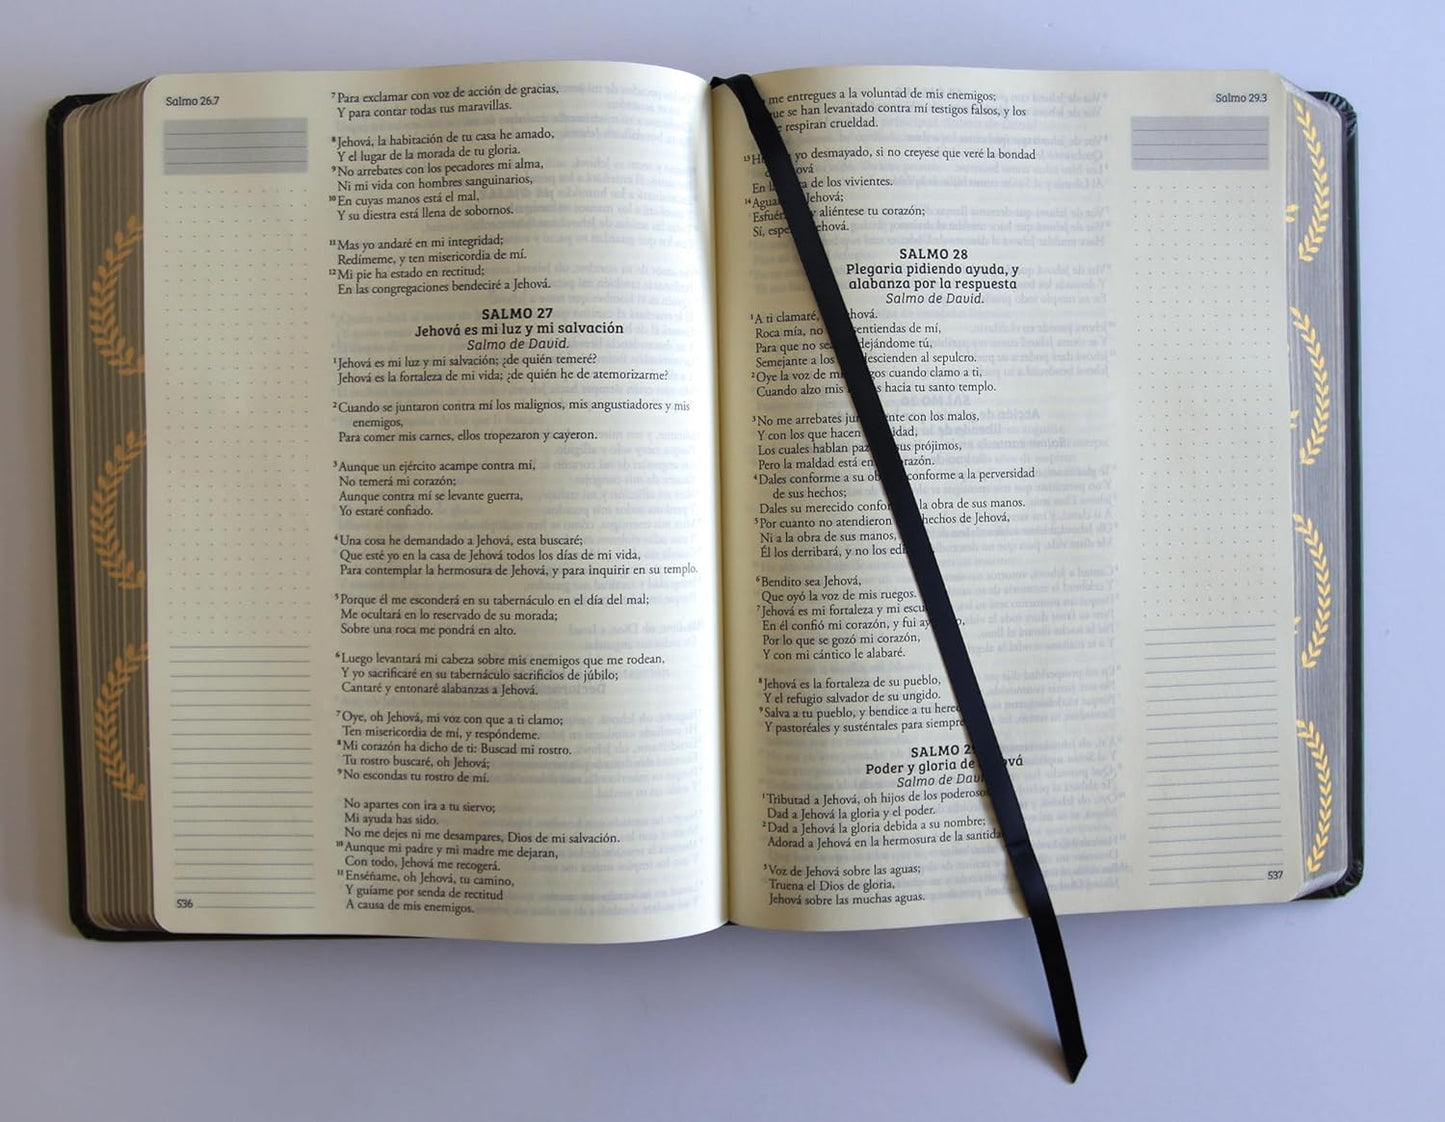 Salmo 26.7
7 Para exclamar con voz de acción de gracias,
Y para contar todas tus maravillas.
8 Jehová, la habitación de tu casa he amado,
Y el lugar de la morada de tu gloria.
9 No arrebates con los pecadores mi alma,
Ni mi vida con hombres sanguinarios,
10 En cuyas manos está el mal,
Y su diestra está llena de sobornos.
11 Mas yo andaré en mi integridad;
Redímeme, y ten misericordia de mí.
12 Mi pie ha estado en rectitud;
En las congregaciones bendeciré a Jehová.
SALMO 27
Jehová es mi luz y mi salvación
Salmo de David.
1 Jehová es mi luz y mi salvación; ¿de quién temeré?
Jehová es la fortaleza de mi vida; ¿de quién he de atemorizarme?
2 Cuando se juntaron contra mí los malignos, mis angustiadores y mis
enemigos,
Para comer mis carnes, ellos tropezaron y cayeron.
3 Aunque un ejército acampe contra mí,
No temerá mi corazón;
Aunque contra mí se levante guerra,
Yo estaré confiado.
4 Una cosa he demandado a Jehová, esta buscaré;
Que esté yo en la casa de Jehová todos los días de mi vida,
Para contemplar la hermosura de Jehová, y para inquirir en su templo.
5 Porque él me esconderá en su tabernáculo en el día del mal;
Me ocultará en lo reservado de su morada;
Sobre una roca me pondrá en alto.
6 Luego levantará mi cabeza sobre mis enemigos que me rodean,
Y yo sacrificaré en su tabernáculo sacrificios de júbilo;
Cantaré y entonaré alabanzas a Jehová.
7 Oye, oh Jehová, mi voz con que a ti clamo;
Ten misericordia de mí, y respóndeme.
8 Mi corazón ha dicho de ti: Buscad mi rostro.
Tu rostro buscaré, oh Jehová;
9 No escondas tu rostro de mí.
No apartes con ira a tu siervo;
Mi ayuda has sido.
No me dejes ni me desampares, Dios de mi salvación.
10 Aunque mi padre y mi madre me dejaran,
Con todo, Jehová me recogerá.
11 Enséñame, oh Jehová, tu camino,
Y guíame por senda de rectitud
A causa de mis enemigos.
536
Salmo 29.3
me entregues a la voluntad de mis enemigos;
se han levantado contra mí testigos falsos, y los
respiran crueldad.
13 yo desmayado, si no creyese que veré la bondad
En la de los vivientes.
14 Jehová;
y aliéntese tu corazón;
Sí, Jehová.
SALMO 28
Plegaria pidiendo ayuda, y
alabanza por la respuesta
Salmo de David.
1 A ti clamaré,
Roca mía, no de mí,
Para que no dejándome tú,
Semejante a los descienden al sepulcro.
2 Oye la voz de cuando clamo a ti,
Cuando alzo mis hacia tu santo templo.
3 No me arrebates con los malos,
Y con los que hacen
Los cuales hablan sus prójimos,
Pero la maldad está en
4 Dales conforme a su conforme a la perversidad
de sus hechos;
Dales su merecido la obra de sus manos.
5 Por cuanto no atendieron hechos de Jehová,
Ni a la obra de sus manos,
Él los derribará, y no los
6 Bendito sea Jehová,
Que oyó la voz de mis ruegos.
7 Jehová es mi fortaleza y mi
En él confió mi corazón, y fui
Por lo que se gozó mi corazón,
Y con mi cántico le alabaré.
8 Jehová es la fortaleza de su pueblo,
Y el refugio salvador de su ungido.
9 Salva a tu pueblo, y bendice a tu
Y pastoréales y susténtales para siempre
SALMO 29
Poder y gloria de
Salmo de
1 Tributad a Jehová, oh hijos de los
Dad a Jehová la gloria y el poder.
2 Dad a Jehová la gloria debida a su nombre;
Adorad a Jehová en la hermosura de la
3 Voz de Jehová sobre las aguas;
Truena el Dios de gloria,
Jehová sobre las muchas aguas.
537